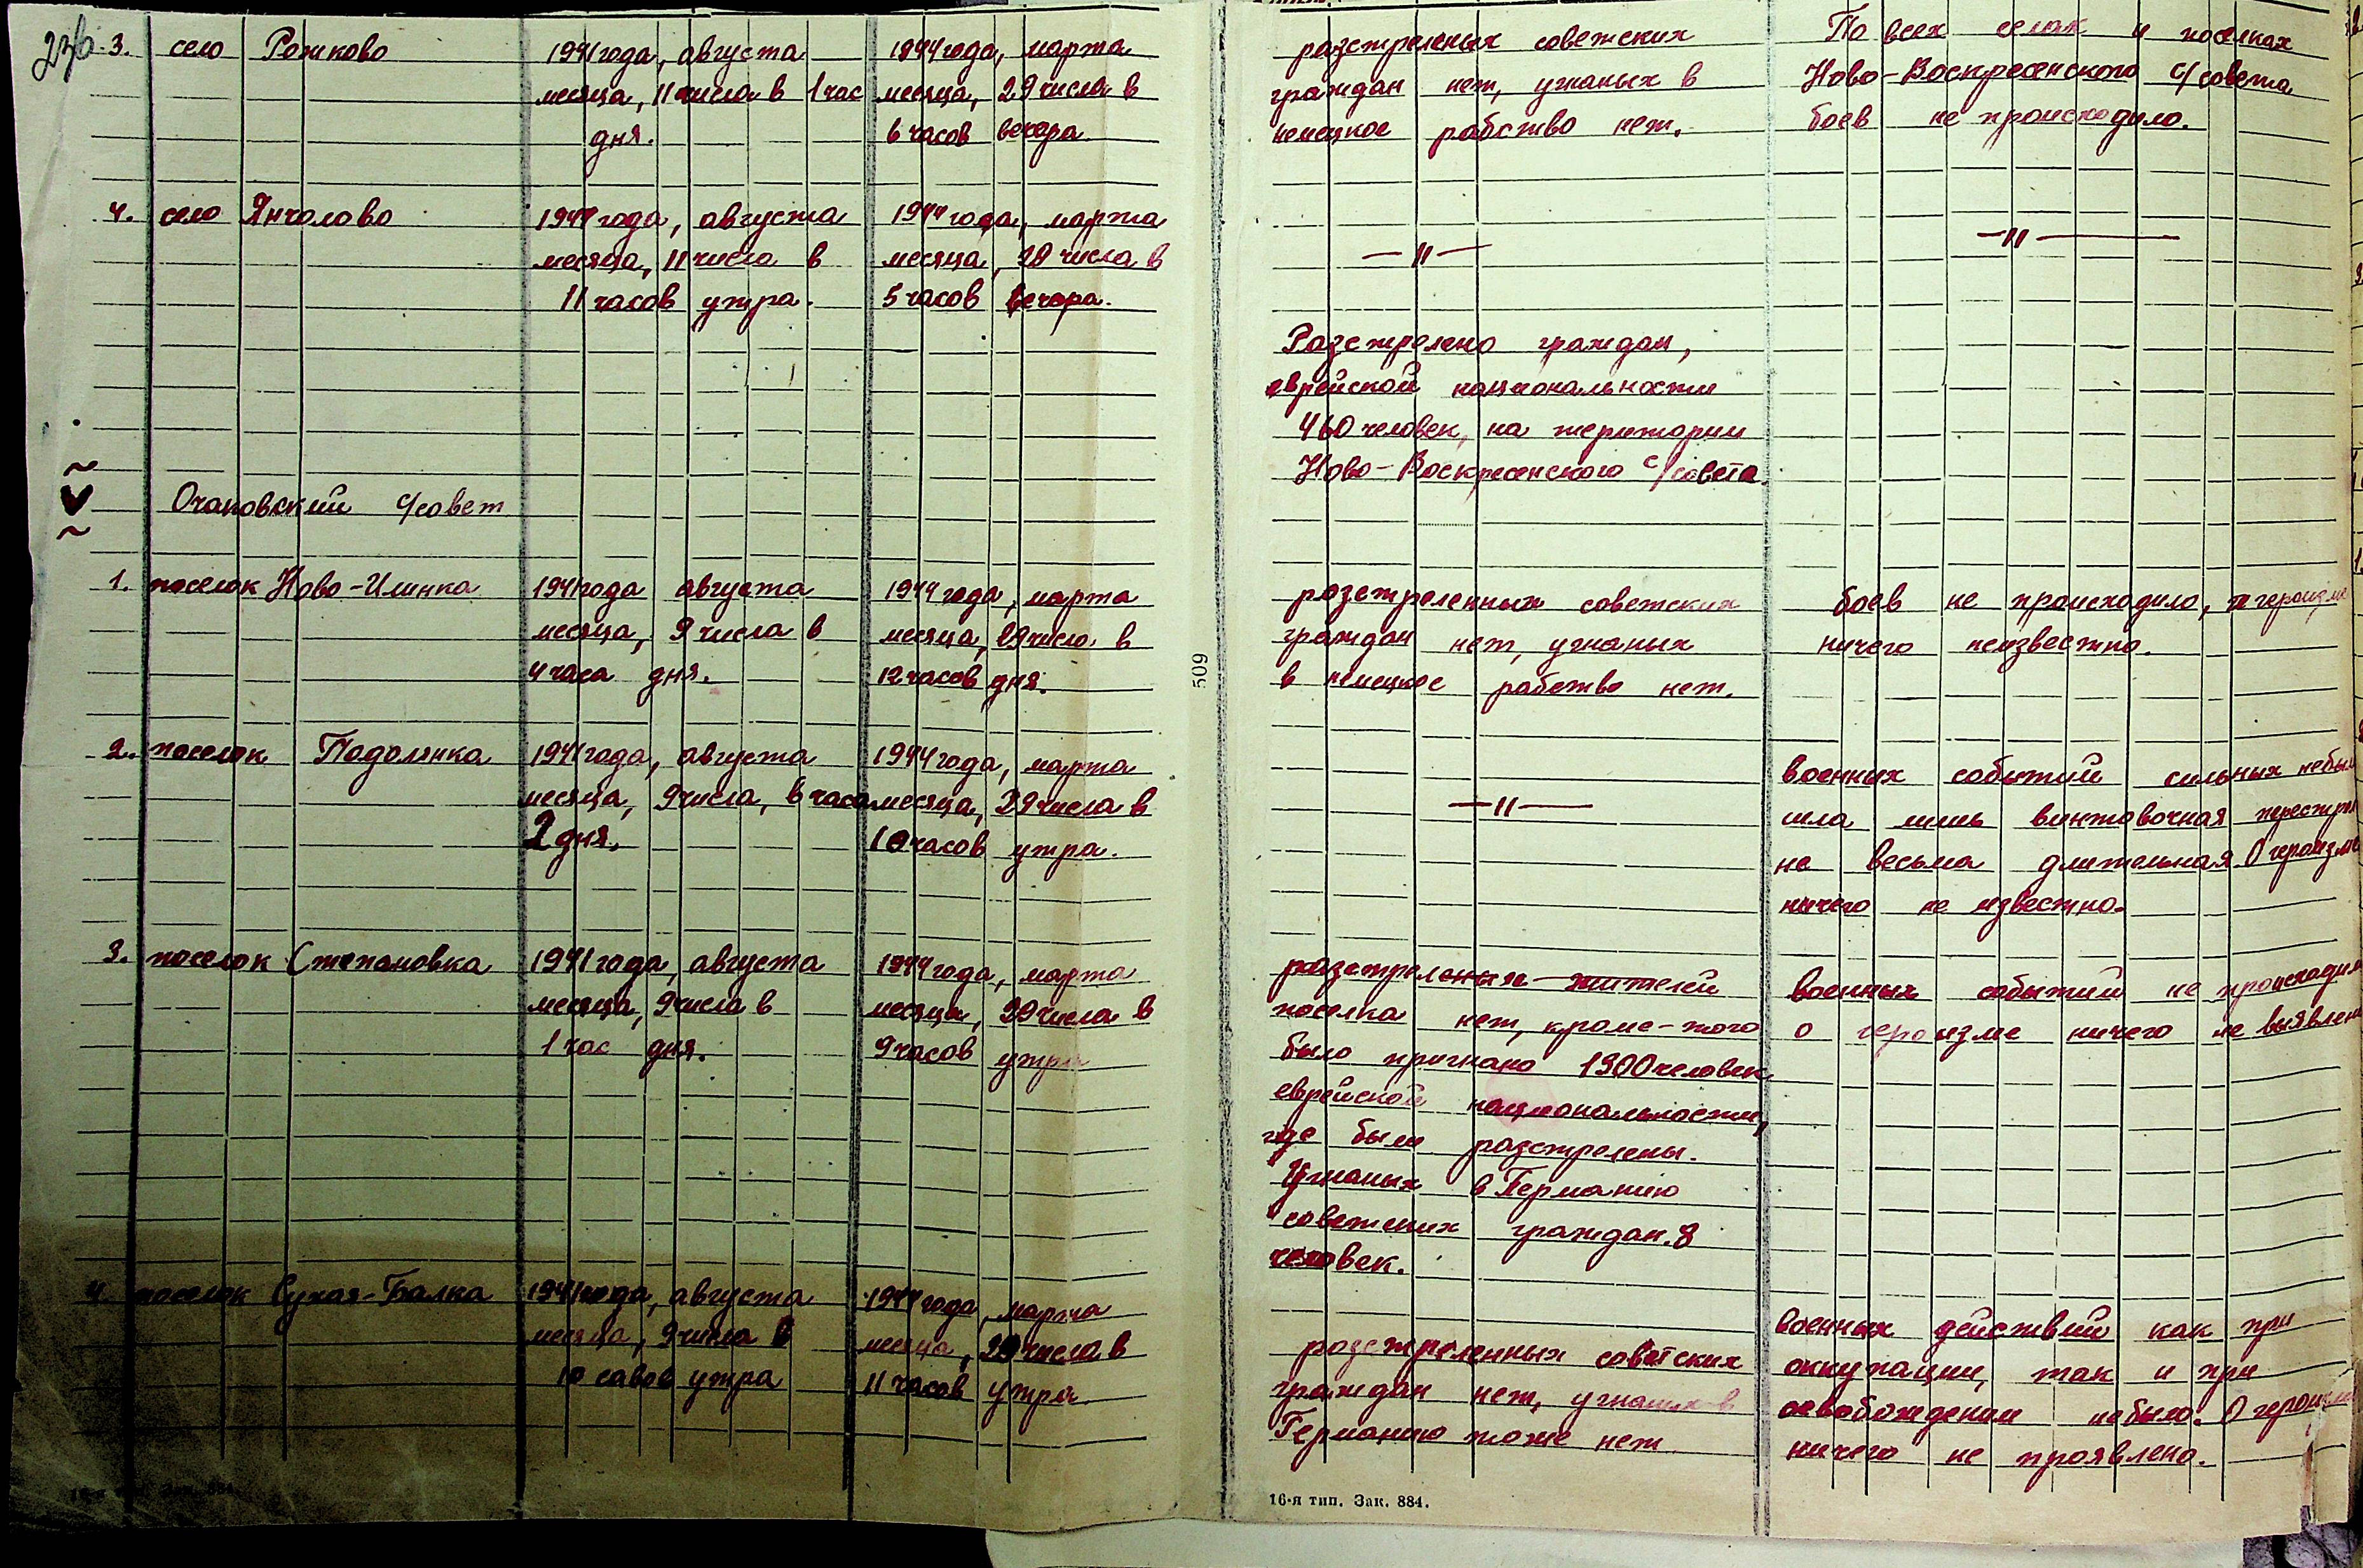 236.
3. село Рожково
1941 года, августа
месяца, 11 числа в 1 час
дня.
1944 года, марта
месяца, 29 числа в
6 часов вечера.
разстреленых советских
граждан нет, угнаных в
немецкое рабство нет.
По всех селах и поселках
Ново-Воскресенского с/совета
боев не происходило.
4. село Янчолово
1941 года, августа
месяца, 11 числа в
11 часов утра.
1944 года, марта
месяца, 28 числа в
5 часов вечора.
—"—
—"—
Разстрелено граждан,
еврейской национальности
460 человек, на територии
Ново-Воскресенского с/совета.
Очаковский с/совет
1. поселок Ново-Илинка
1941 года августа
месяца, 9 числа в
4 часа дня.
1944 года, марта
месяца, 29 числа в
12 часов дня.
разстреленных советских
граждан нет, угнаных
в немецкое рабство нет.
боев не происходило, о героизме
ничего неизвестно.
2. поселок Подолянка
1941 года, августа
месяца, 9 числа, в часа
2 дня.
1944 года, марта
месяца, 29 числа в
10 часов утра.
—"—
военных событий сильных небыл
шла лишь винтовочная перестрел
не весьма длительная О героизме
ничего не известно.
3. поселок Степановка
1941 года, августа
месяца, 9 числа в
1 час дня.
1944 года, марта
месяца, 29 числа в
9 часов утра
разстреленых жителей
поселка нет, кроме-того
было пригнано 1300 человек
еврейской национальности,
где были разстрелены.
Угнаных в Германию
советских граждан. 8
человек.
военных событий не происходил
о героизме ничего не выявлен
4. поселок Сухая-Балка
1941 года, августа
месяца, 9 числа в
10 савов утра
1944 года, марта
месяца, 29 числа в
11 часов утра.
разстреленных советских
граждан нет, угнаных в
Германию тоже нет
военных действий как при
оккупации, так и при
освобождении небыло. О героизме
ничего не проявлено.
509
16-я тип. Зак. 884.
16-я тип. Зак. 884.